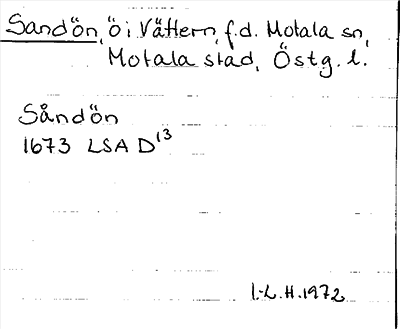 Sandön, ö i Vättern, f.d. Motala sn,
Motala stad, Östg. l.
Såndön
1673 LSA D13
I.-L.H. 1972